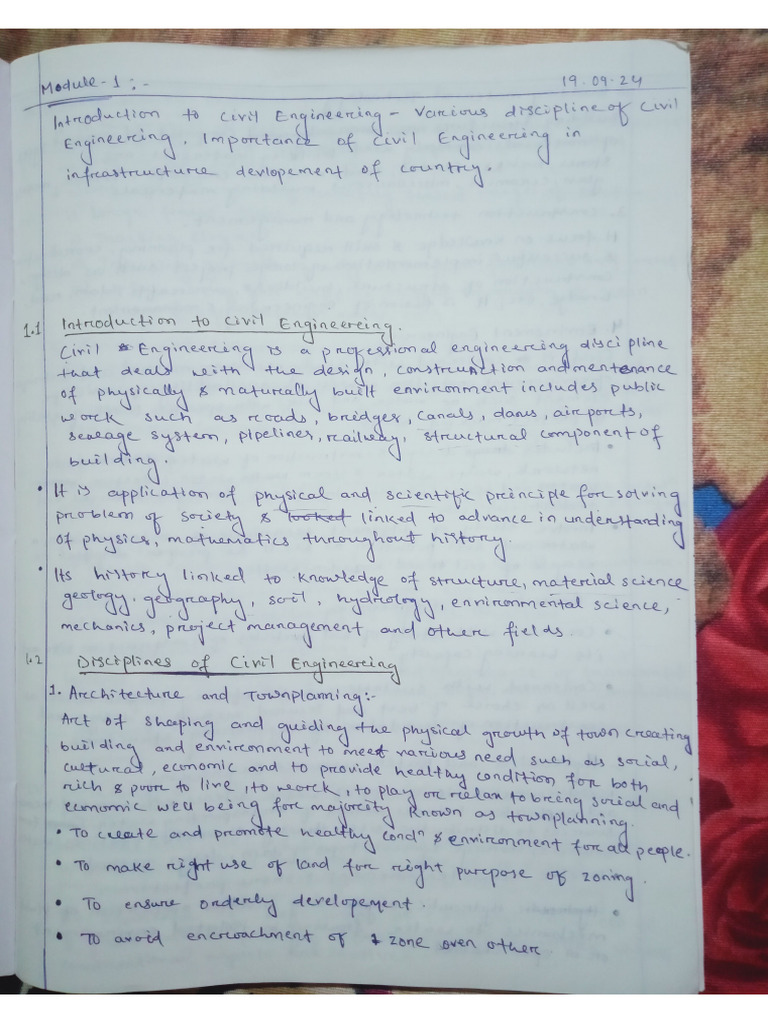 Module-1 :-
19.09.24
Introduction to Civil Engineering - Various discipline of Civil
Engineering. Importance of Civil Engineering in
infrastructure devlopement of country.
1.1 Introduction to Civil Engineereing.
Civil Engineering is a professional engineering discipline
that deals with the design, construction and mentenance
of physically & naturally built environment includes public
work such as roads, bredges, canals, dams, airports,
seweage system, pipelines, railway, structural component of
building.
• It is application of physical and scientific principle for solving
problem of society & looked linked to advance in understanding
of physics, mathematics throughout history.
• Its history linked to knowledge of structure, material science
geology, geography, soil, hydrology, environmental science,
mechanics, project management and other fields.
1.2 Disciplines of Civil Engineering
1. Architecture and Townplanning:-
Art of shaping and guiding the physical growth of town creating
building and environment to meet various need such as social,
cultural, economic and to provide healthy condition for both
rich & poor to live, to work, to play or relax to bring social and
economic well being for majority known as townplanning.
• To create and promote healthy condn & environment for all people.
• To make right use of land for right purpose of zoning.
• To ensure orderly developement.
• To avoid encroachment of 1 zone over other